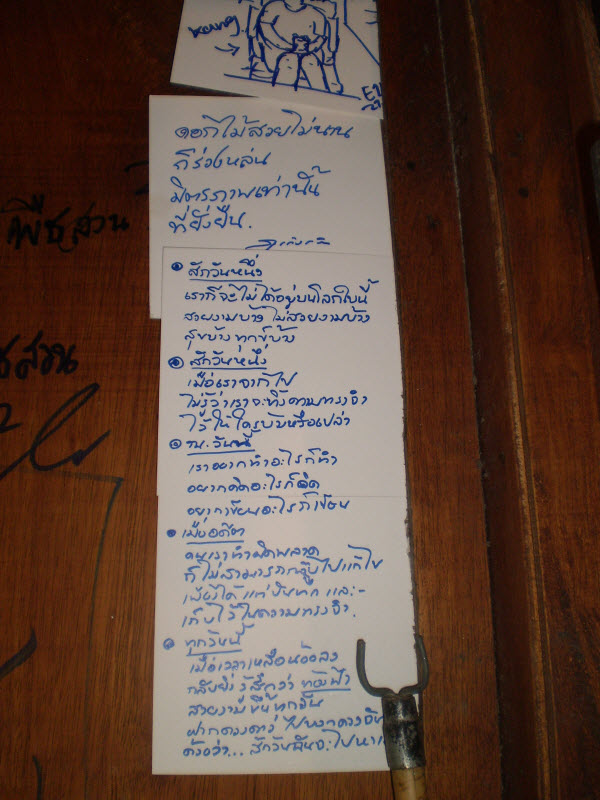 ดอกไม้สวยไม่นาน
ก็ร่วงหล่น
มิตรภาพเท่านั้น
ที่ยั่งยืน.
พืชสวน
สวน
สักวันหนึ่ง
เราก็จะไม่ได้อยู่บนโลกใบนี้
สวยงามบ้าง ไม่สวยงามบ้าง
สุขบ้าง ทุกข์บ้าง
สักวันหนึ่ง
เมื่อเราจากไป
ไม่รู้ว่าเราจะทิ้งความทรงจำ
ไว้ให้ใครบ้างหรือเปล่า
ณ.วันนี้
เราอยากทำอะไรก็ทำ
อยากคิดอะไรก็คิด
อยากเขียนอะไรก็เขียน
เมื่ออดีต
คนเราทำผิดพลาด
ก็ไม่สามารถกลับไปแก้ไข
เพียงได้แต่บันทึก และ-
เก็บไว้ในความทรงจำ.
ทุกวันนี้
เมื่อเวลาเหลือน้อยลง
กลับยิ่งรู้สึกว่า ท้องฟ้า
สวยงามขึ้นทุกวัน
ฝากดวงดาว ไปบอกดวงจัน
ด้วยว่า... สักวันฉันจะไปหา